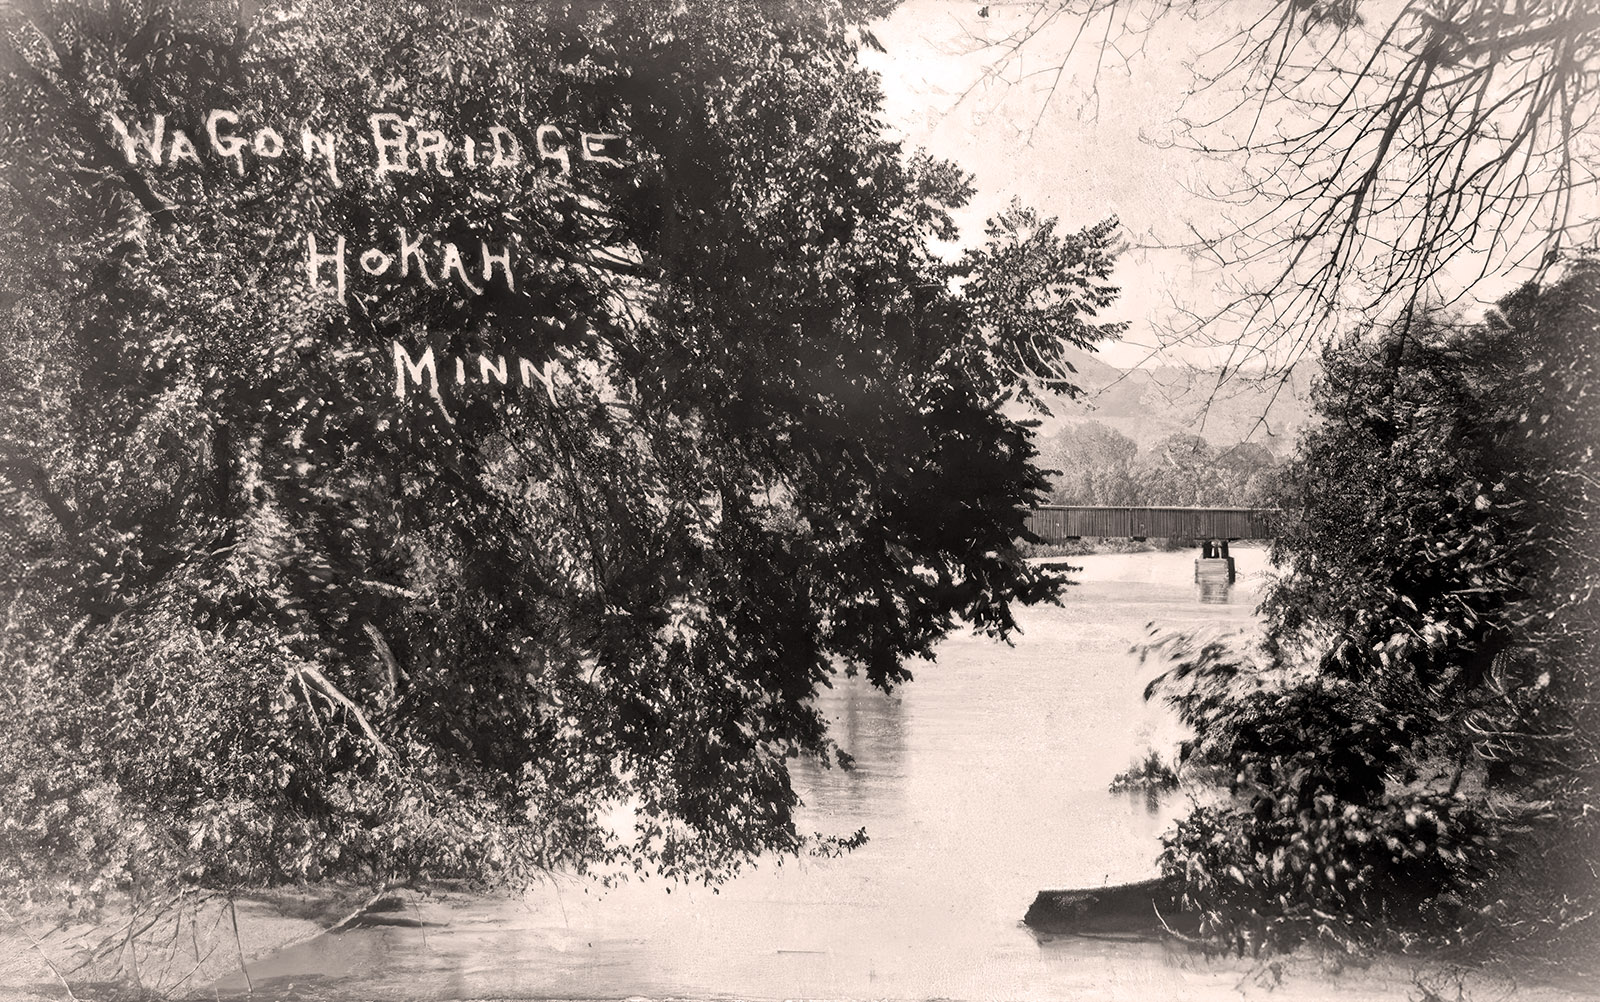 WAGON BRIDGE
HOKAH
MINN